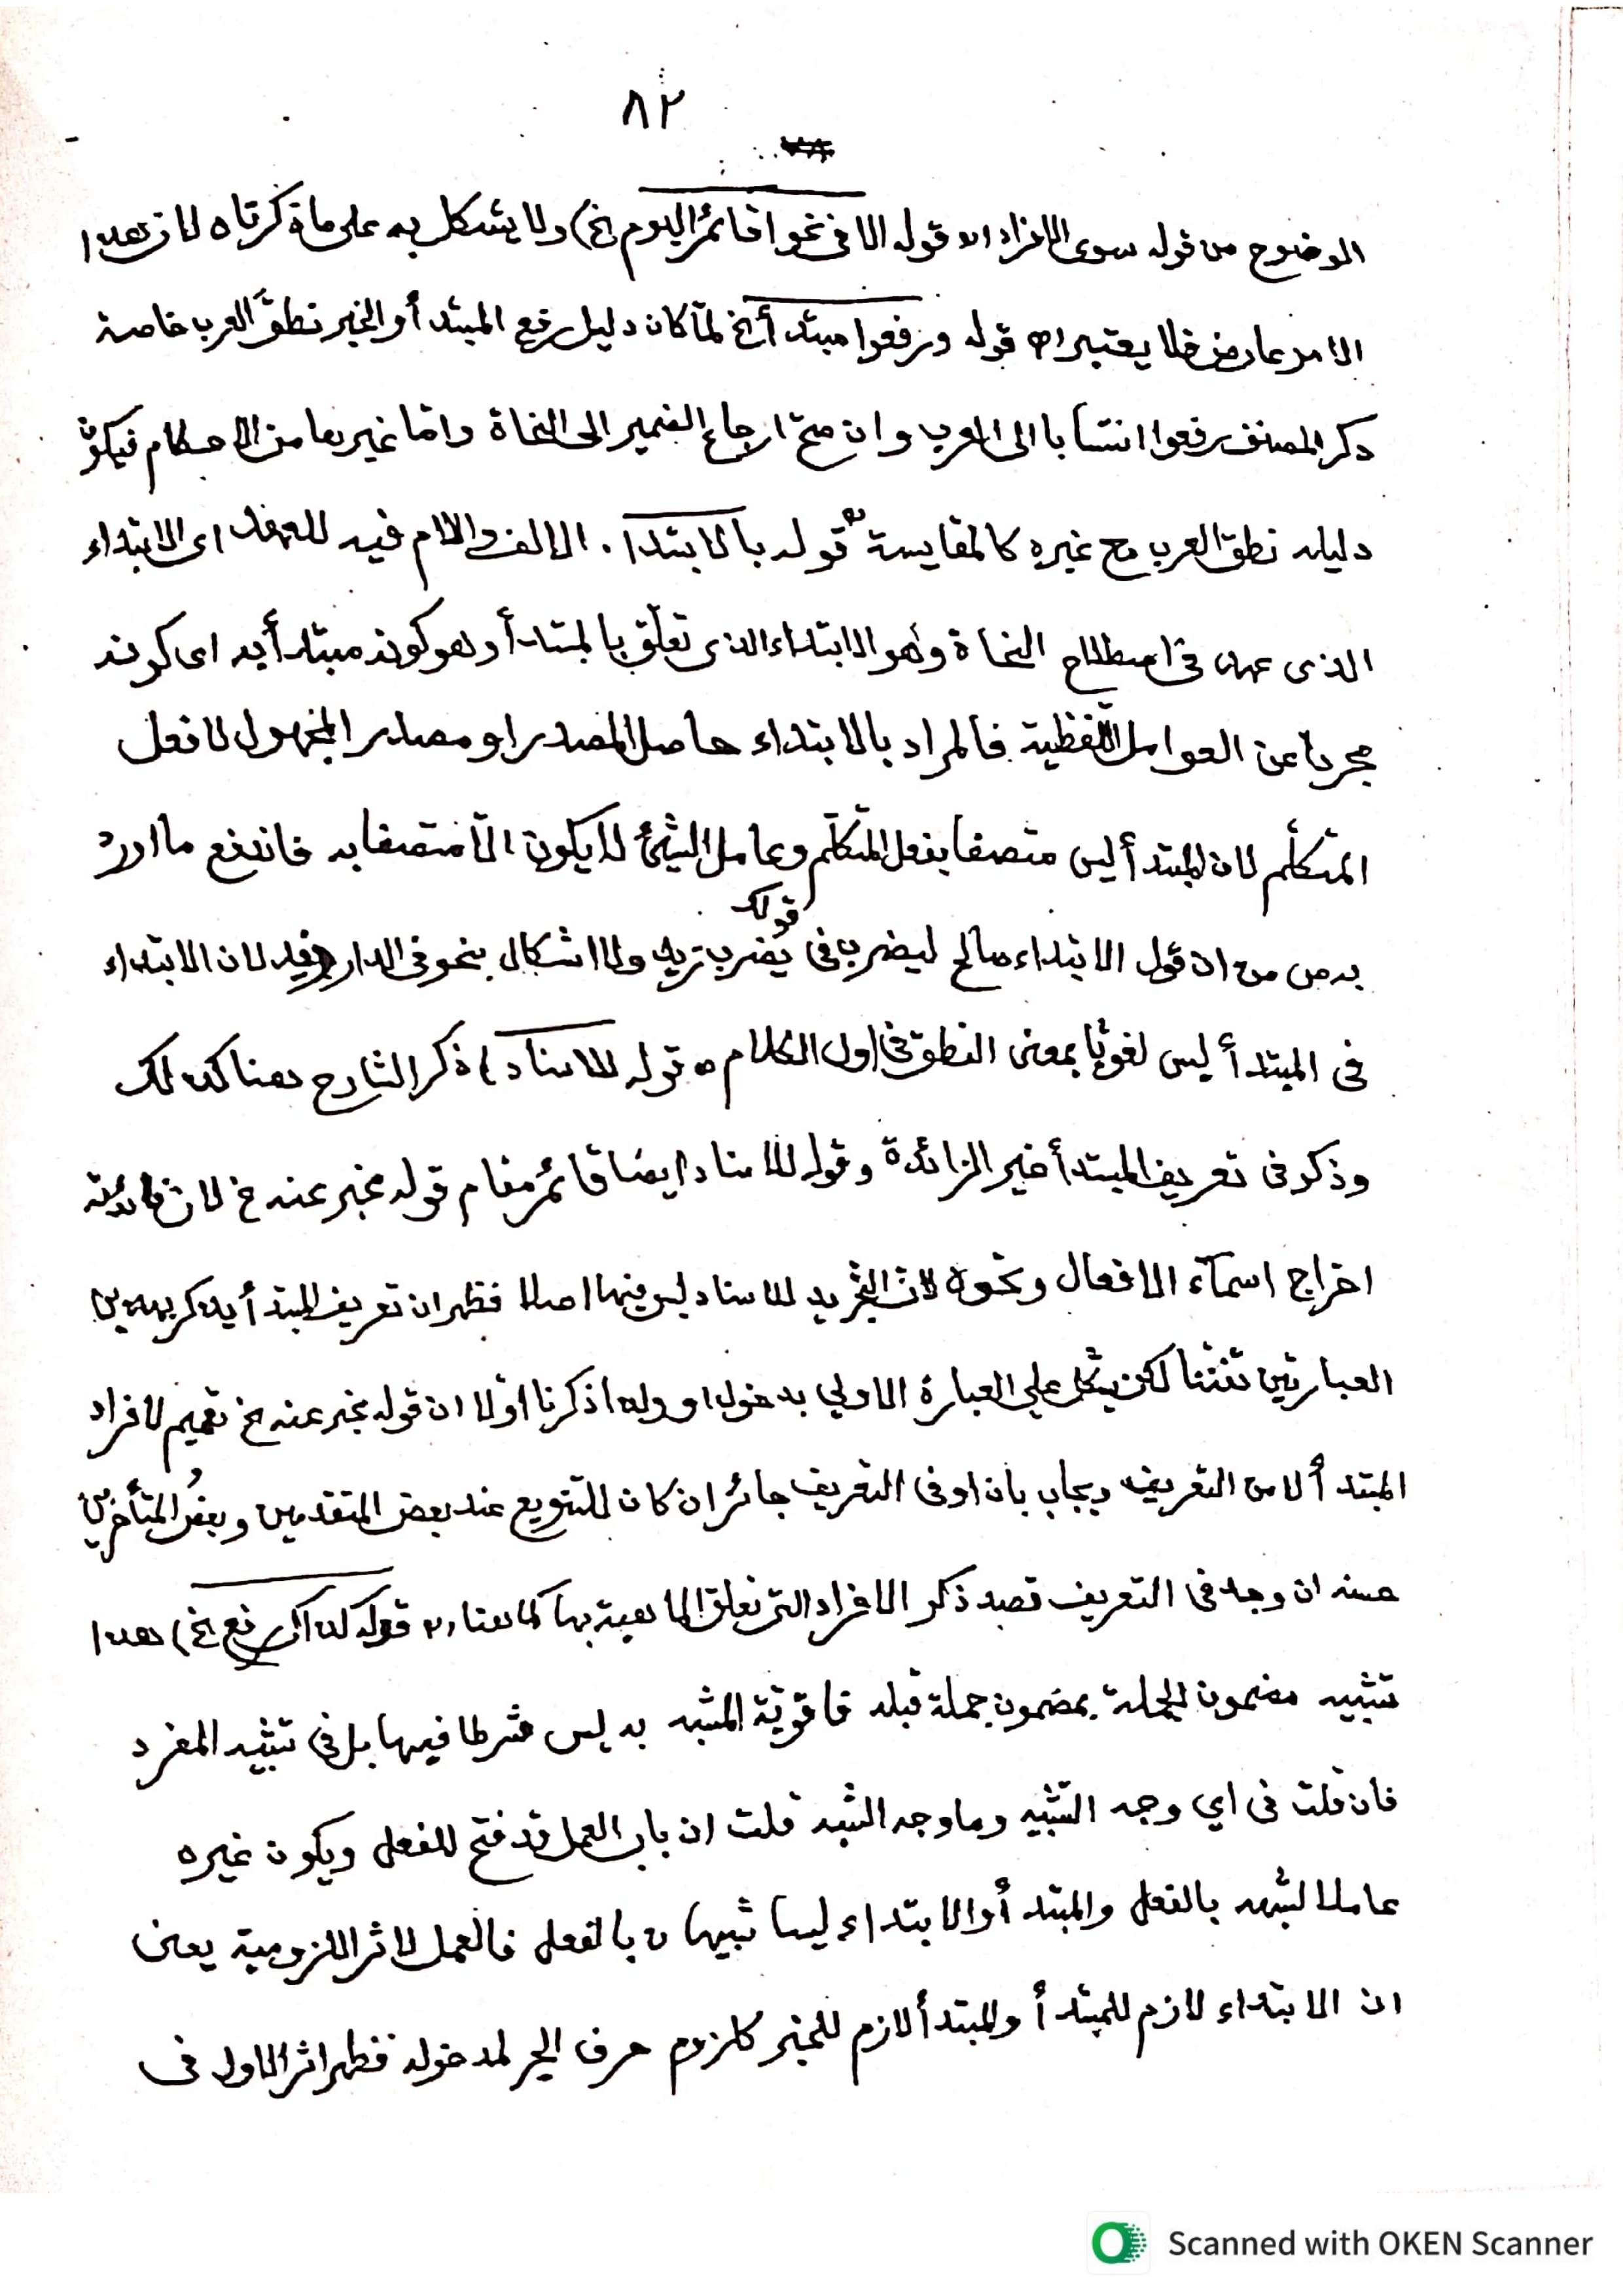 ٨٢
الوضوح من قوله سوى الافراد اه قوله الا في نحو اقائم اليوم الخ) ولا يشكل به على ما ذكرناه لان هذا
الامر عارض فلا يعتبر اه قوله ورفعوا مبتدأ الخ لمّا كان دليل رفع المبتدأ والخبر نطق العرب خاصة
ذكر المصنف رفعوا انتسابا الى العرب وان صحّ ارجاع الضمير الى النحاة واما غيرها من الاحكام فيكون
دليله نطق العرب مع غيره كالمقايسة قوله بالابتدا. الالف والام فيه للعهد اى الابتداء
الذى عهد في اصطلاح النحاة وهو الابتداء الذى تعلّق بالمبتدأ وهو كونه مبتدأ به اى كونه
مجردا عن العوامل اللّفظية فالمراد بالابتداء حاصل المصدر او مصدر المجهول لا فعل
المتكلّم لان المبتدأ ليس متصفا بفعل المتكلّم وعامل الشئ لا يكون الّا متصفا به فاندفع ما اورد
به ص من ان قول الابتداء صالح ليضرب في قولك يضرب زيد ولا اشكال بنحو في الدار لان الابتداء
في المبتدأ ليس لغويّا بمعنى النطق في اول الكلام ه قوله للاسناد) ذكر الشارح هنا كذلك
وذكر في تعريف المبتدأ غير الزائدة وقوله للاسناد ايضا قائم مقام قوله مخبر عنه خ لان فائدته
اخراج اسمآء الافعال ونحوه لانّ التجريد للاسناد ليس فيها اصلا فظهر ان تعريف المبتدأ يذكر بهذين
العبارتين تفننا لكن يشكل على العبارة الاولي بدخول او ولذا ذكرنا اوّلا ان قوله مخبر عنه خ تعميم لافراد
المبتدأ لا من التعريف ويجاب بان او في التعريف جائز ان كان للتنويع عند بعض المتقدمين وبعض المتأخرين
حسنه ان وجد في التعريف قصد ذكر الافراد التى تعلق الماهية بها كما هنا اه قوله كذاك رفع الخ) هذا
تشبيه مضمون الجملة بمضمون جملة قبله فاقويّة المشبه به ليس شرطا فيها بل في تشبيه المفرد
فان قلت في اي وجه التشبيه وما وجه الشبه قلت ان باب العمل قد فتح للفعل ويكون غيره
عاملا لشبهه بالفعل والمبتدأ والابتداء ليسا شبيهان بالفعل فالعمل لاثر اللزومية يعنى
ان الابتداء لازم للمبتدأ والمبتدأ لازم للخبر كلزوم حرف الجر لمدخوله فظهر اثر الاول في
Scanned with OKEN Scanner